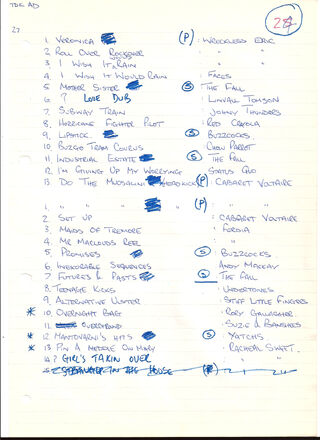 TDK AD
28
27
1. VERONICA (P) : WRECKLESS ERIC
2. ROLL OVER ROCKSTAR " "
3. I WISH IT RAIN " "
4. I WISH IT WOULD RAIN : FACES
5. MOTHER SISTER (S) : THE FALL
6. ? LOVE DUB : LINVALL TOMSON
7. SUBWAY TRAIN : JOHNY THUNDERS
8. HURRICANE FIGHTER PILOT : RED CRAYOLA
9. LIPSTICK (S) : BUZZCOCKS
10. BUZGO TRAM CHORUS : CHOU PARROT
11. INDUSTRIAL ESTATE (S) : THE FALL
12. I'M GIVING UP MY WORRYING : STATUS QUO
13. DO THE MUSSALINI HEADKICK (P) : CABARET VOLTAIRE
1. " " (P) " "
2. SET UP : CABARET VOLTAIRE
3. MAIDS OF TREMORE : FORDIA
4. MR MACLOUDS REEL " "
5. PROMISES (S) : BUZZCOCKS
6. INEXORABLE SEQUENCES : ANDY MACKAY
7. FUTURES & PASTS (S) : THE FALL
8. TEENAGE KICKS : UNDERTONES
9. ALTERNATIVE ULSTER : STIFF LITTLE FINGERS
* 10. OVERNIGHT BAG : RORY GALLAGHER
11. OVERGROUND : SUZIE & BANSHEES
* 12. MANTOVANI'S HITS (S) : YATCHTS
* 13. PIN A MEDDLE ON MARY : RACHEAL SWEET
14. ? GIRL'S TAKIN OVER " "
15. STRANGER IN THE HOUSE (P)